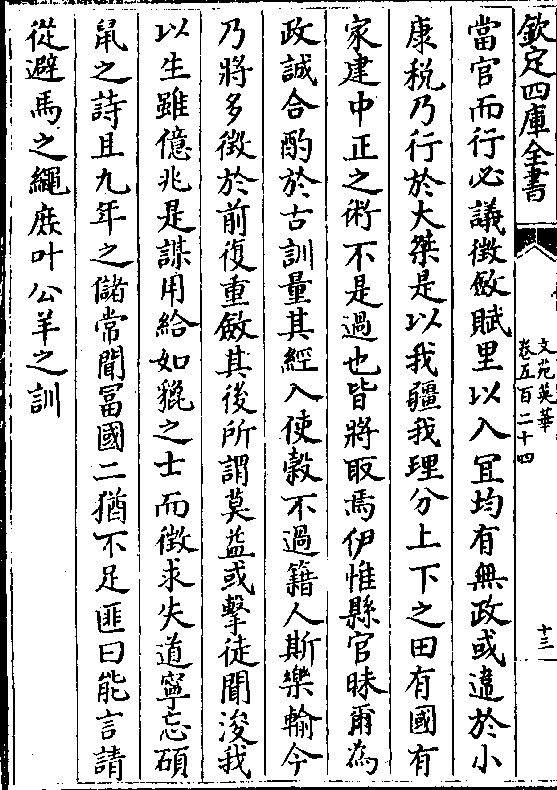 欽定四庫全書
文苑英華
卷五百二十四
十三
當官而行必議徴斂賦里以入冝均有無政或違於小
康稅乃行於大桀是以我疆我理分上下之田有國有
家建中正之術不是過也皆將取焉伊惟縣官昧爾為
政誠合酌於古訓量其經入使穀不過籍人斯樂輸今
乃將多徴於前復重斂其後所謂莫益或擊徒聞浚我
以生雖億兆是謀用給如貔之士而徴求失道寧忘碩
鼠之詩且九年之儲常聞冨國二猶不足匪曰能言請
從避馬之繩庻叶公羊之訓